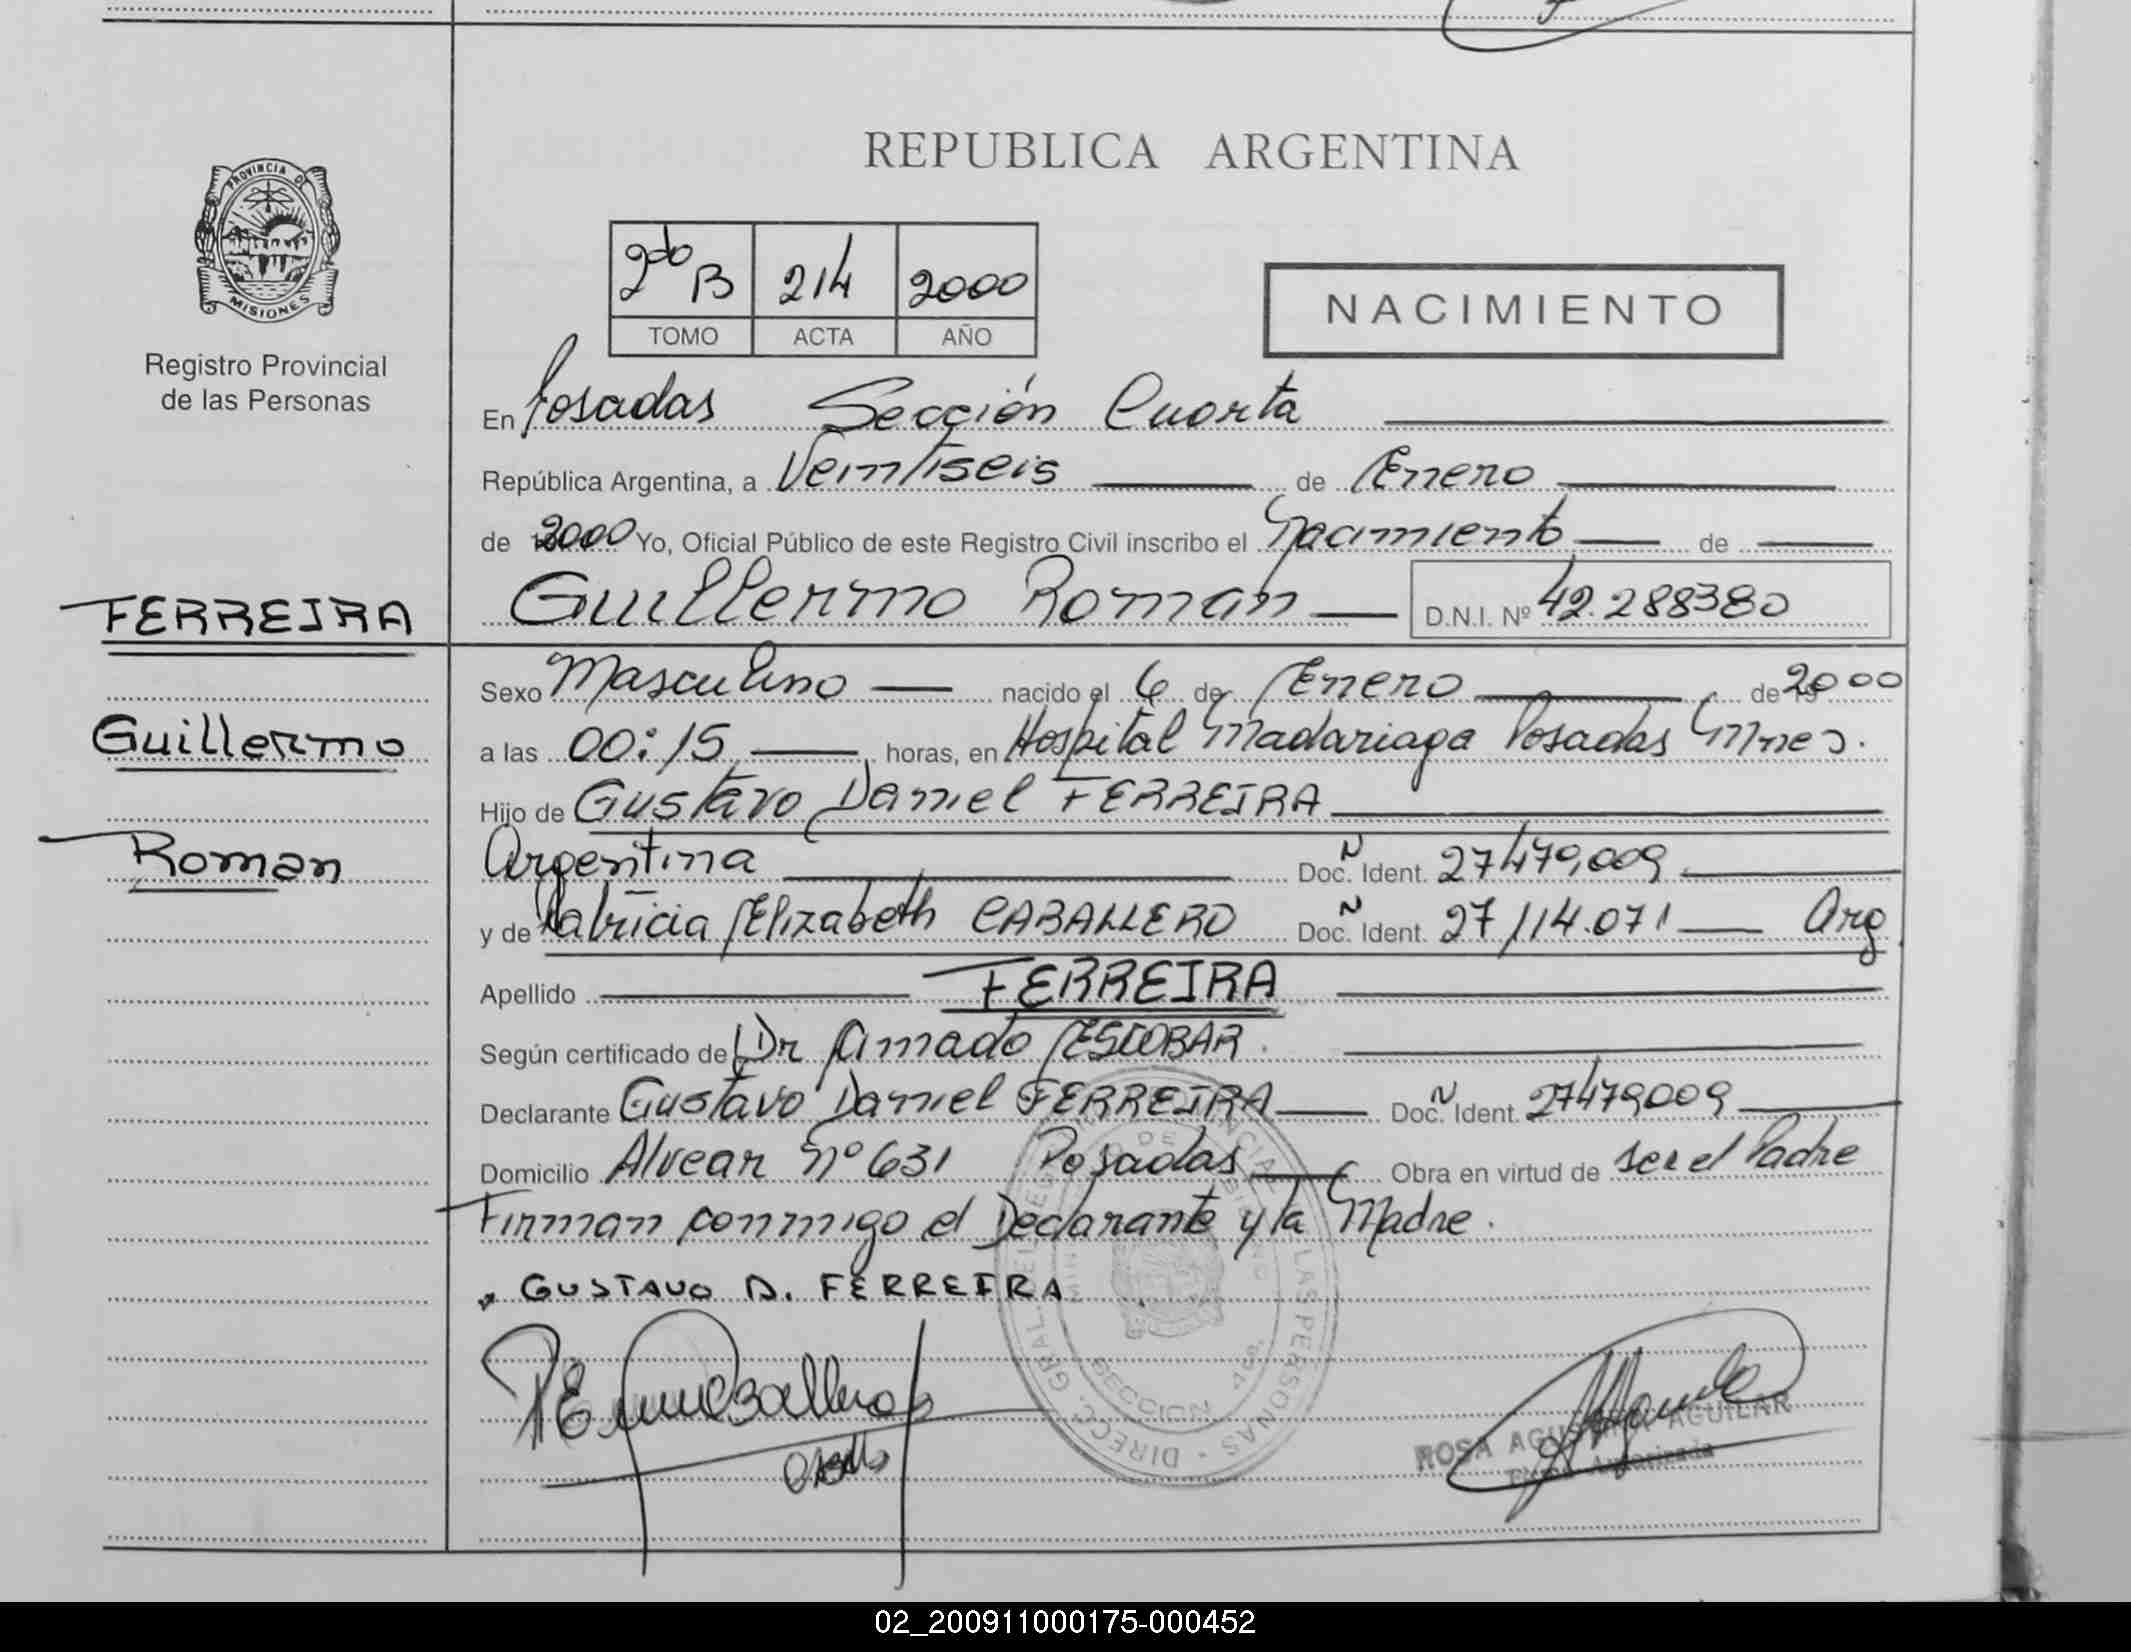 REPUBLICA ARGENTINA
PROVINCIA DE
MISIONES
Registro Provincial
de las Personas
2do B 214 2000
TOMO ACTA AÑO
NACIMIENTO
En Posadas Sección Cuarta
República Argentina, a Veintiseis de Enero
de 2000 Yo, Oficial Público de este Registro Civil inscribo el Nacimiento de
Guillermo Roman D.N.I. Nº 42.288380
FERREIRA
Guillermo
Roman
Sexo Masculino nacido el 6 de Enero de 2000
a las 00:15 horas, en Hospital Madariaga Posadas Mnes.
Hijo de Gustavo Daniel FERREIRA
Argentina Doc. Ident. 27479,009
y de Patricia Elizabeth CABALLERO Doc. Ident. 27/114.071 Arg
Apellido FERREIRA
Según certificado de Dr Amado ESCOBAR.
Declarante Gustavo Daniel FERREIRA Doc. Ident. 27479009
Domicilio Alvear Nº 631 Posadas Obra en virtud de ser el Padre
Firman conmigo el Declarante y la Madre.
GUSTAVO D. FERREIRA
SECCION 4ta.
ROSA AGUSTINA AGUILAR
Firma Autorizada
02_200911000175-000452